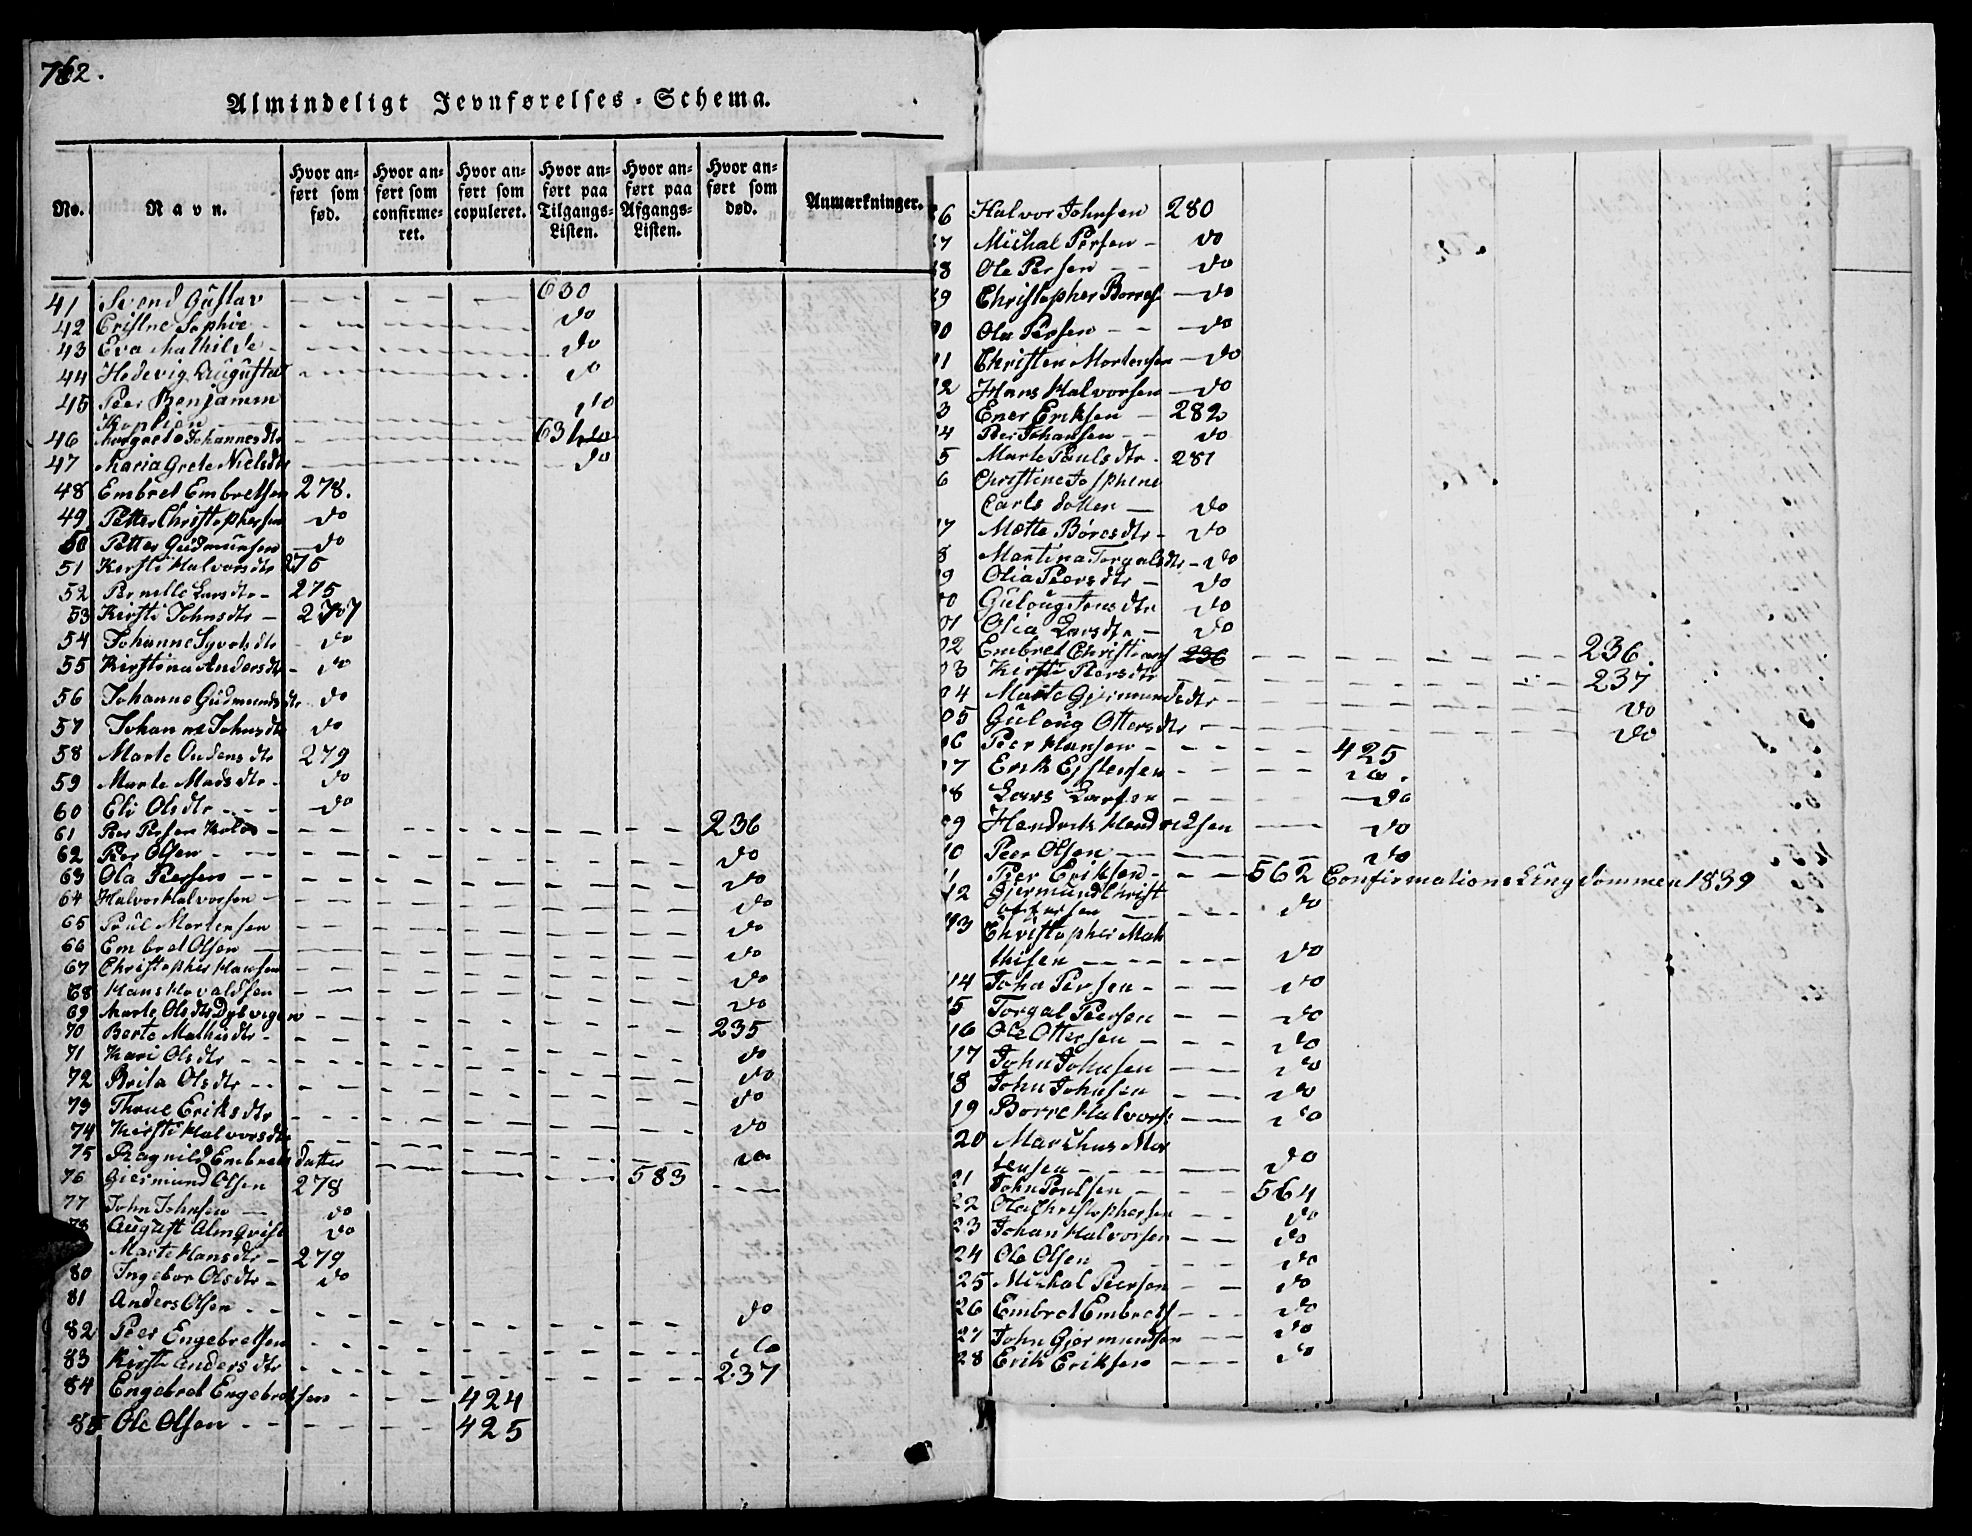 762.
Almindeligt Jevnførelses-Schema.
No. Navn. Hvor anført som fød. Hvor anført som confirmeret. Hvor anført som copuleret. Hvor anført paa Tilgangs-Listen. Hvor anført paa Afgangs-Listen. Hvor anført som død. Anmærkninger.
41 Svend Gustav 630
42 Cristne Sophie do
43 Eva Mathilde do
44 Hedevig Augusta do
45 Peer Benjamin do
46 Margrete Johannesdtr 631
47 Maria Grete Nielsdtr do
48 Embret Embretsen 278.
49 Petter Christophersen do
50 Petter Gudmunsen do
51 Kersti Halvorsdtr 275
52 Pernille Larsdtr 275
53 Kirsti Johnsdtr 277
54 Johanne Syversdtr do
55 Kirstina Andersdtr do
56 Johanne Gudmundsdtr do
57 Johanne Johnsdtr do
58 Marte Oudensdtr 279
59 Marte Madsdtr do
60 Eli Olsdtr do
61 Peer Persen 236
62 Peer Olsen do
63 Ola Peersen do
64 Halvor Halvorsen do
65 Poul Mortensen do
66 Embret Olsen do
67 Christopher Hansen do
68 Hans Hovaldsen do
69 Marte Olsdtr Dybvigen 235
70 Berte Mathisdtr do
71 Kari Olsdtr do
72 Brita Olsdtr do
73 Thrue Eriksdtr do
74 Kirsti Halvorsdtr do
75 Ragnild Embrets datter 583
76 Giermund Olsen 278
77 John Johnsen do
78 August Almqvist do
Marte Hansdtr 279
80 Ingebor Olsdtr do
81 Anders Olsen do
82 Peer Engebretsen do
83 Kirsti Andersdtr 237
84 Engebret Engebretsen 424
85 Ole Olsen 425
86 Halvor Johnsen 280
87 Michal Persen do
88 Ole Persen do
89 Christopher Borres do
90 Ola Persen do
91 Christen Mortensen do
92 Hans Halvorsen do
3 Ener Eriksen 282
4 Peer Johansen do
5 Marte Paulsdtr 281
6 Christine Josphine
Carls datter do
97 Mætte Børesdtr do
8 Martina Torgalsdtr do
99 Olia Peersdtr do
00 Guloug Jensdtr do
01 Olia Larsdtr do
02 Embret Christians 236 236.
03 Kirsti Peersdtr 237
04 Marte Gjermundsdtr do
05 Guloug Ottersdtr do
06 Peer Hansen 425
07 Erik Ejstensen do.
08 Lars Larsen do
09 Hendrik Hendricksen do
10 Peer Olsen do
11 Peer Eriksen 562 Confirmations Ung dommen 1839
12 Gjermund Christ
offersen do
13 Christopher Mat
thisen do
14 John Persen do
15 Torgal Peersen do
16 Ole Ottersen do
17 John Johnsen do
18 John Johnsen do
19 Borre Halvors: do
20 Marchus Mor
tensen do
21 John Poulsen 564
22 Ole Christophersen do
23 Johan Halvorsen do
24 Ole Olsen do
25 Michal Peersen do
26 Embret Embrets do
27 John Gjermundsen do
28 Erik Eriksen do